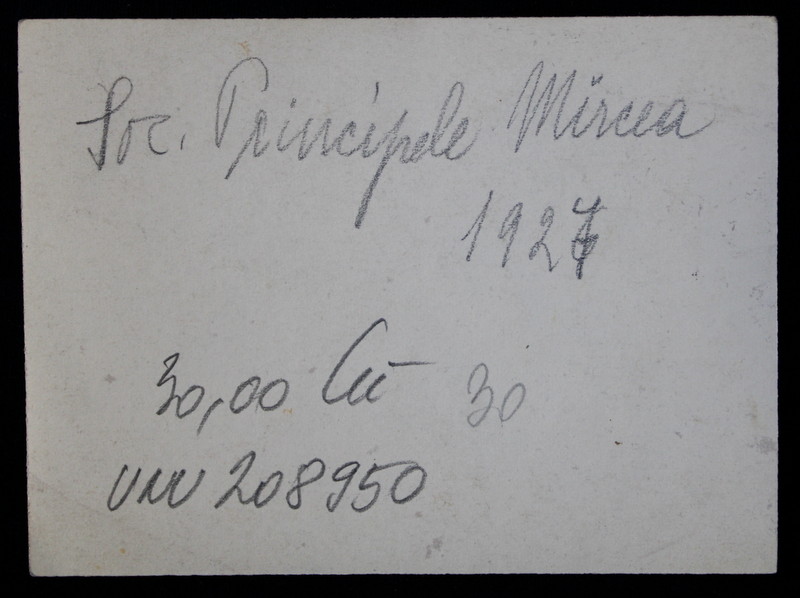 Soc. Principele Mircea
1927
30,00 Lei 30
UNV 208950